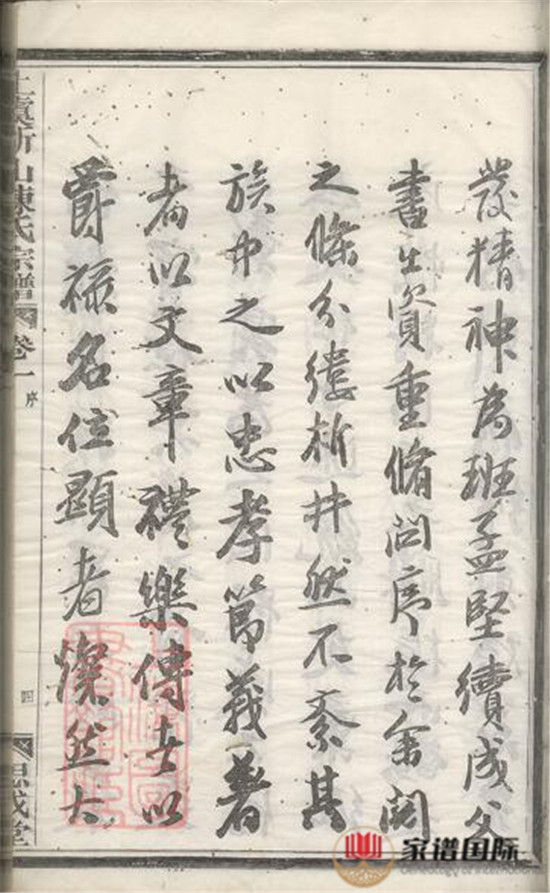 發精神為班孟堅續成父
書出資重脩問序於余閱
之條分縷析井然不紊其
族中之以忠孝節義著
者以文章禮樂傳世以
爵祿名位顯者燦然大
上虞山陳氏宗譜
卷一
序
四
思成堂
家谱国际
Genealogy of International